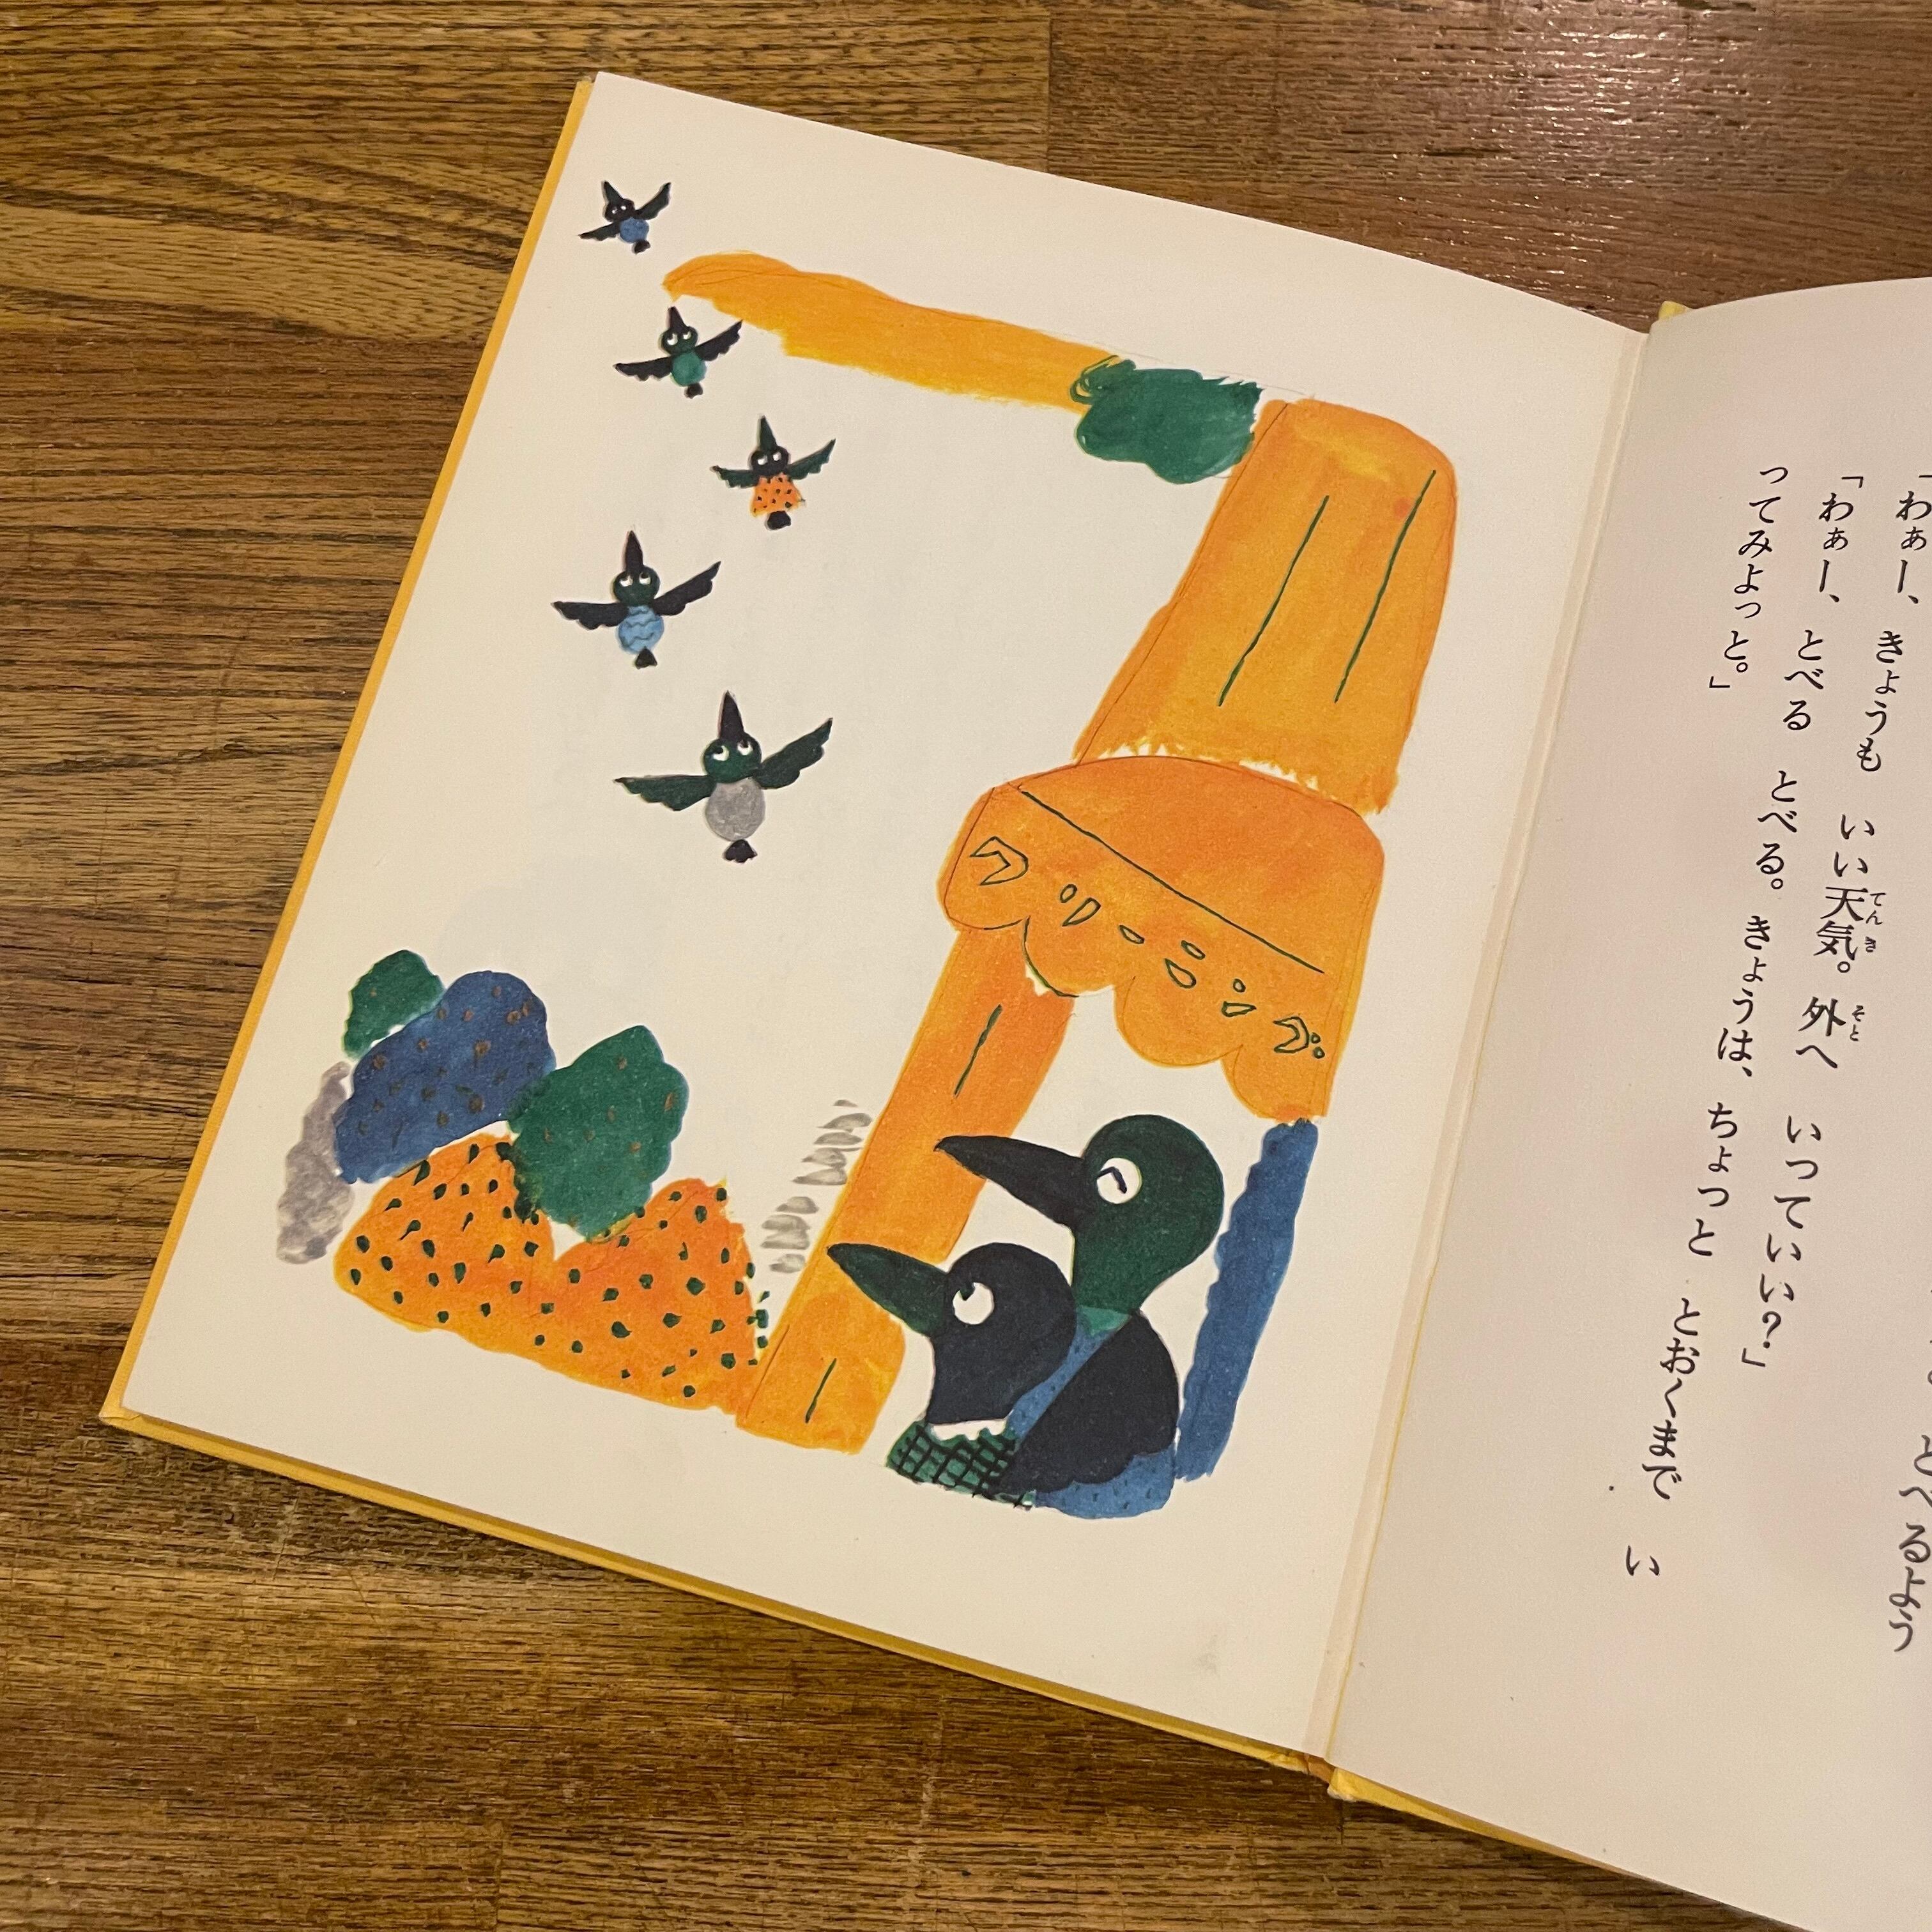 とべるよう
「わぁー、 きょうも いい天気。 外へ いっていい?」
てんき
そと
「わぁー、 とべる とべる。 きょうは、 ちょっと とおくまで い
ってみよっと。」
クリーニング